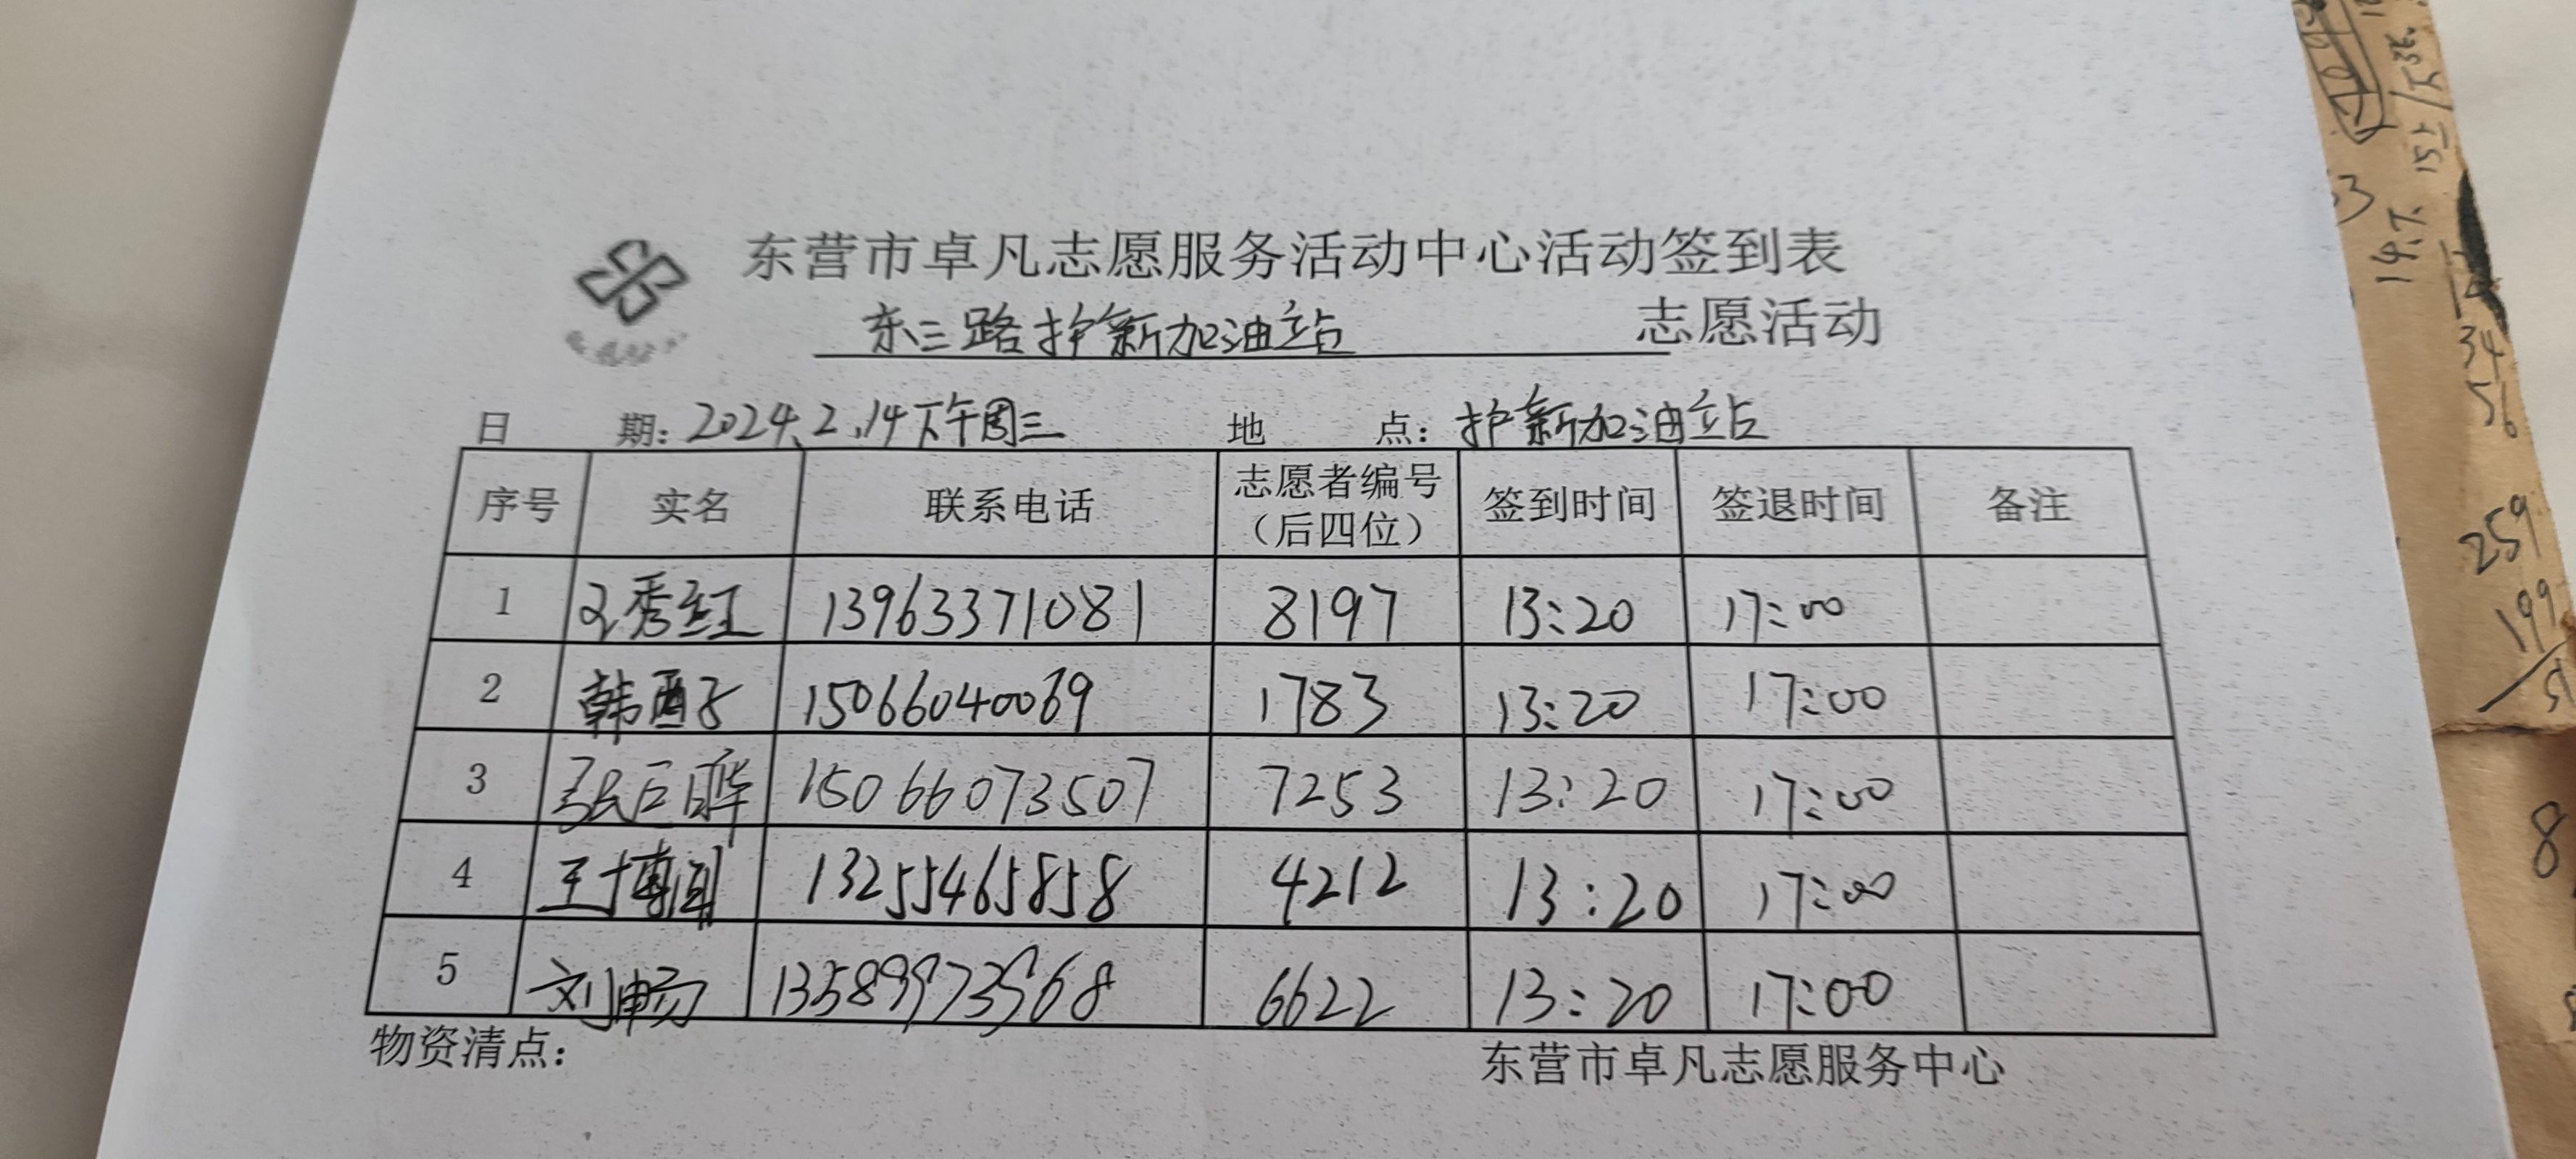 东营市卓凡志愿服务活动中心活动签到表
东三路护新加油站 志愿活动
日 期: 2024.2.14下午周三 地 点: 护新加油站
序号 实名 联系电话 志愿者编号（后四位） 签到时间 签退时间 备注
1 秀红 13963371081 8197 13:20 17:00
2 韩 15066040069 1783 13:20 17:00
3 张巨晔 15066073507 7253 13:20 17:00
4 王博闻 13255465858 4212 13:20 17:00
5 刘畅 13589973968 6622 13:20 17:00
物资清点: 东营市卓凡志愿服务中心
34
56
259
199
8